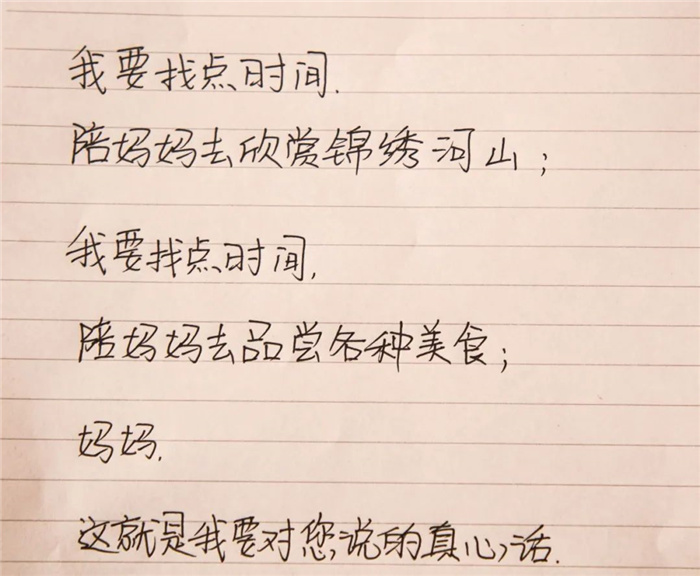 我要找点时间.
陪妈妈去欣赏锦绣河山;
我要找点时间,
陪妈妈去品尝各种美食;
妈妈.
这就是我要对您说的真心话.